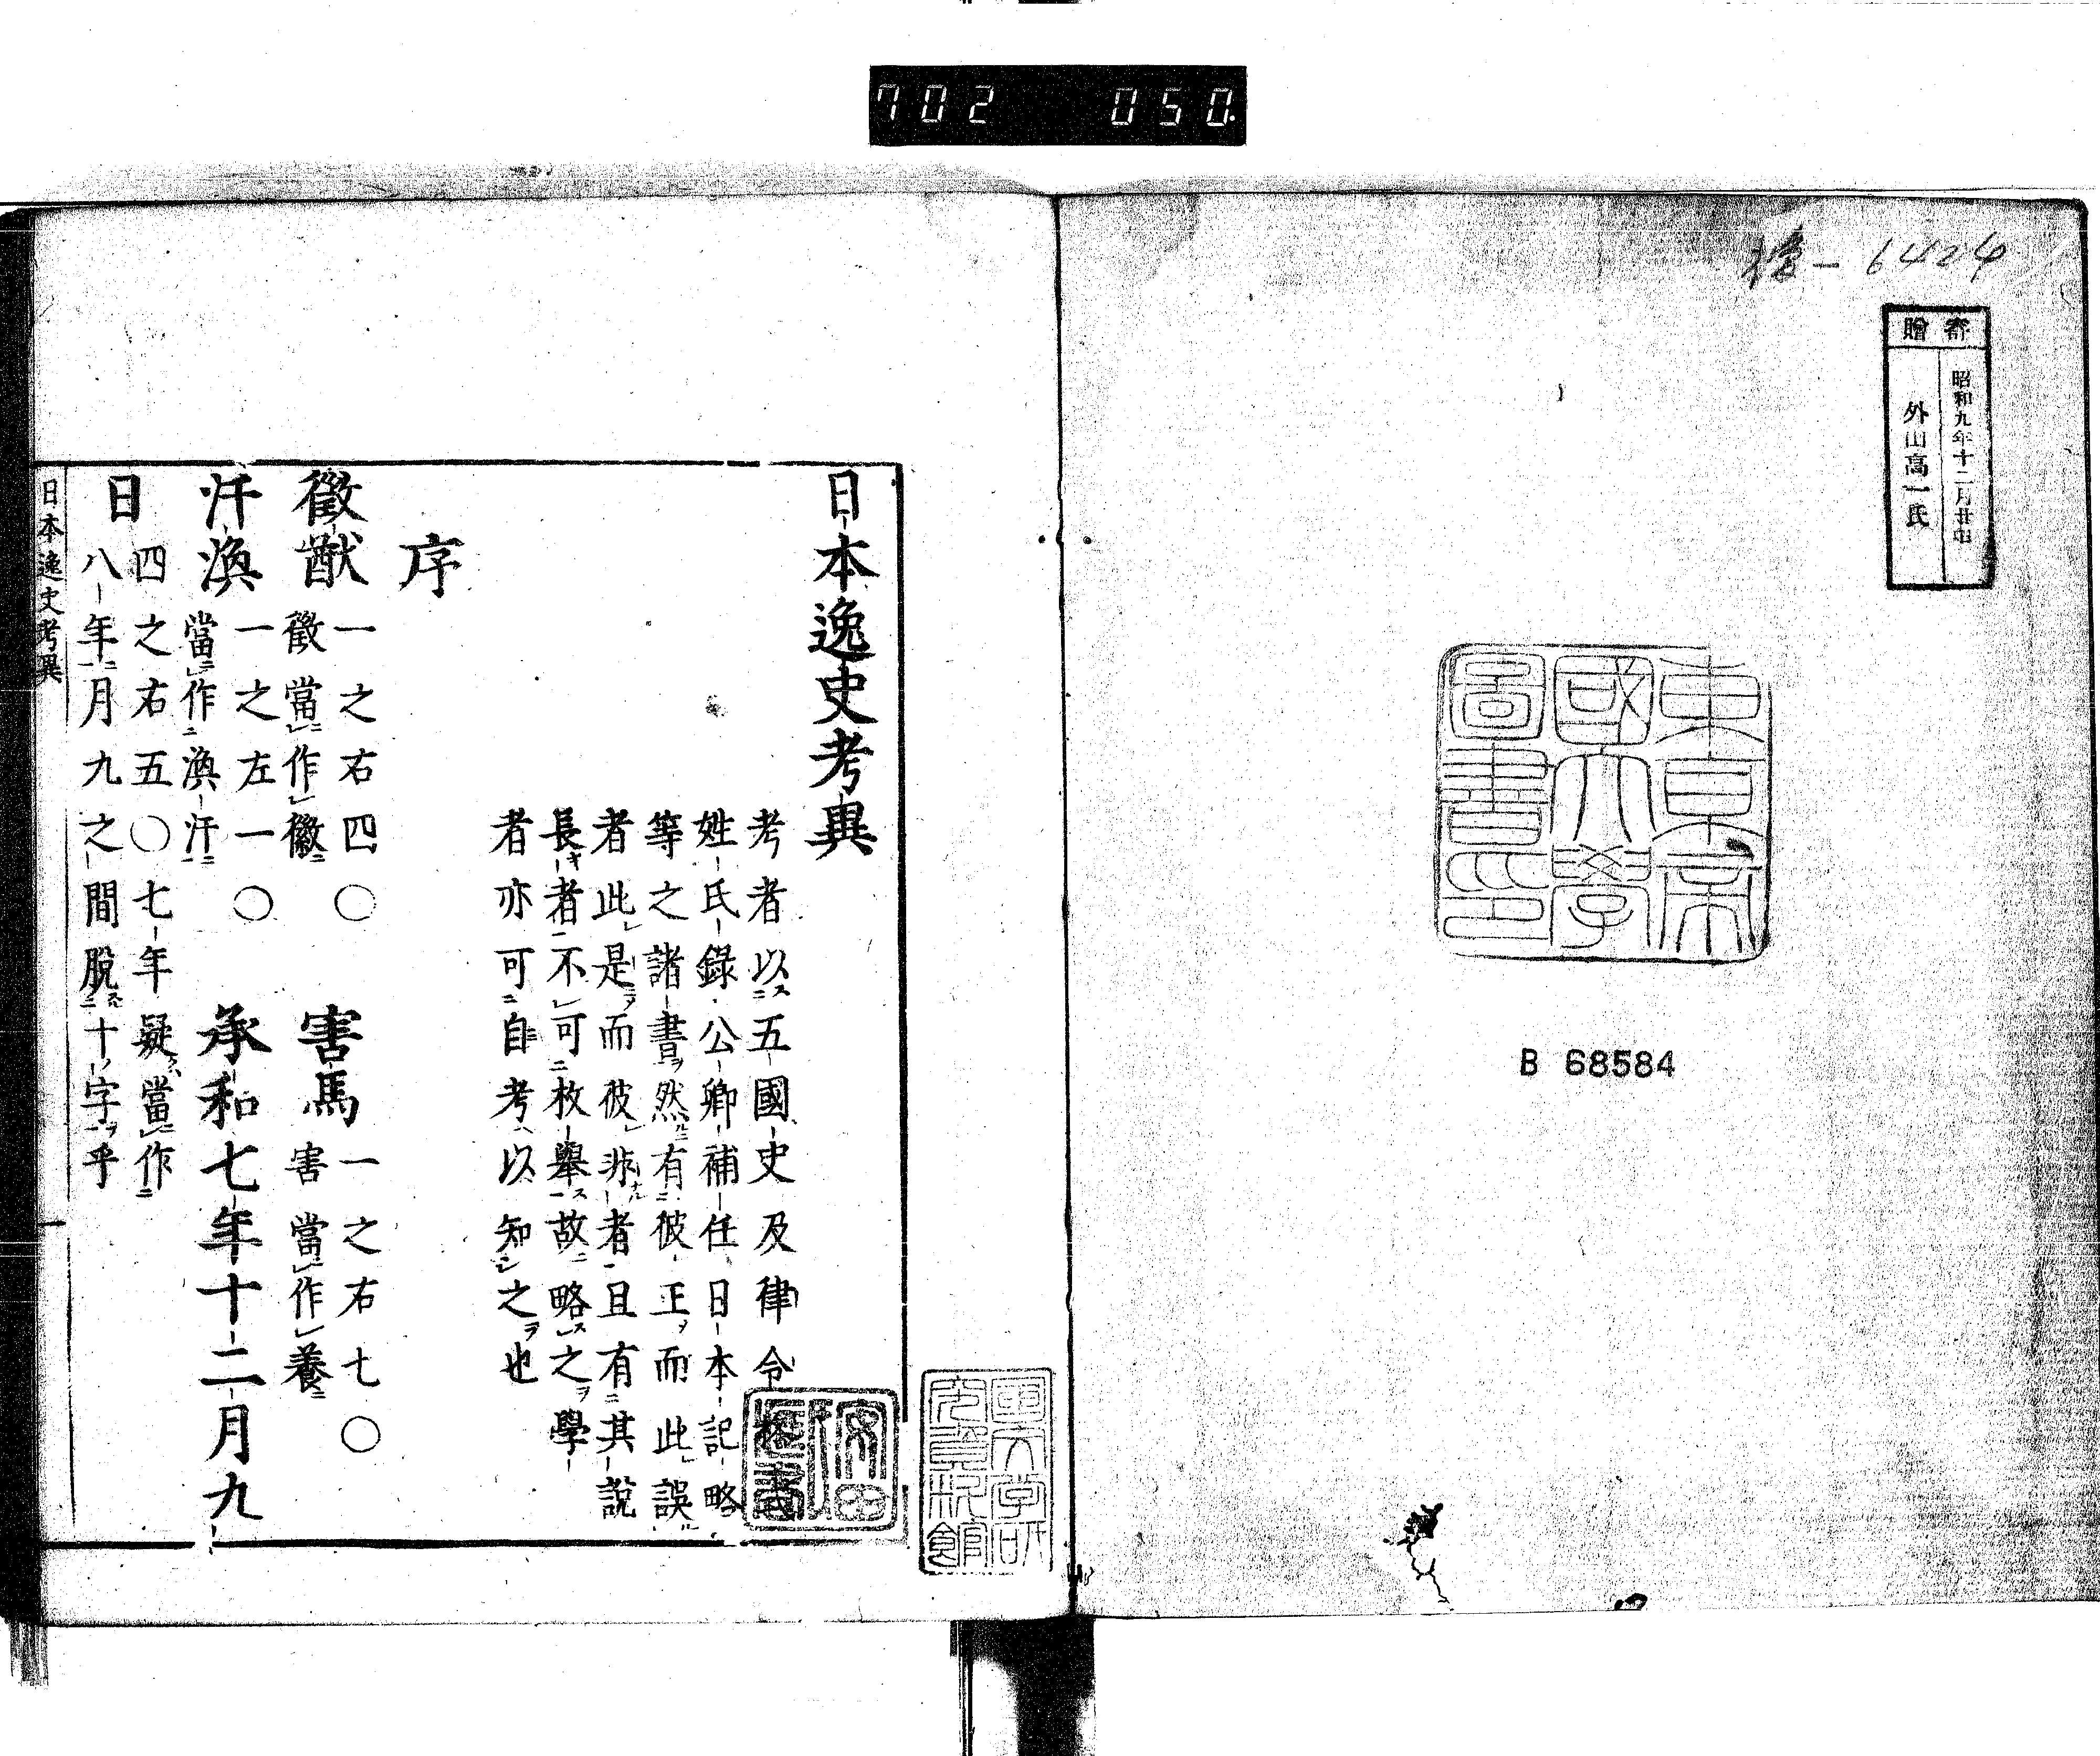 702 050
6424
寄贈
昭和九年十二月廿
外山高一氏
東京帝
國大學
圖書印
B 68584
國文学研
究資料館
日本逸史考異
考者以五國史及律令
姓氏錄公卿補任日本記略
等之諸書然有彼正而此誤
者此是而彼非者且有其說
長者不可枚舉故略之學
者亦可自考以知之也
序
徵猷 一之右四〇徵當作徽 害馬 一之右七〇害當作養
汗渙 一之左一〇當作渙汗 承和七年十二月九
日 四之右五〇七年疑當作八年月九之間脫十字乎
日本逸史考異 一